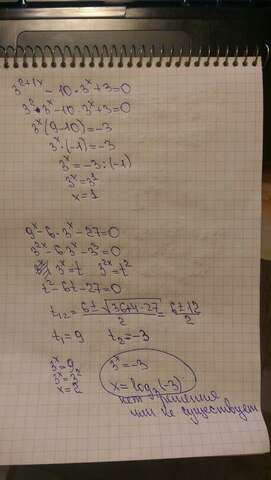 3^{2+1x} - 10 · 3^x + 3 = 0
3^2 · 3^x - 10 · 3^x + 3 = 0
3^x (9-10) = -3
3^x · (-1) = -3
3^x = -3 : (-1)
3^x = 3^1
x = 1
9^x - 6 · 3^x - 27 = 0
3^{2x} - 6 · 3^x - 3^3 = 0
3^x = t 3^{2x} = t^2
t^2 - 6t - 27 = 0
t_{1,2} = \frac{6 ± \sqrt{36+4·27}}{2} = \frac{6 ± 12}{2}
t_1 = 9 t_2 = -3
3^x = 9
3^x = 3^2
x = 2
3^x = -3
x = log_3 (-3)
нет решения
или не существует